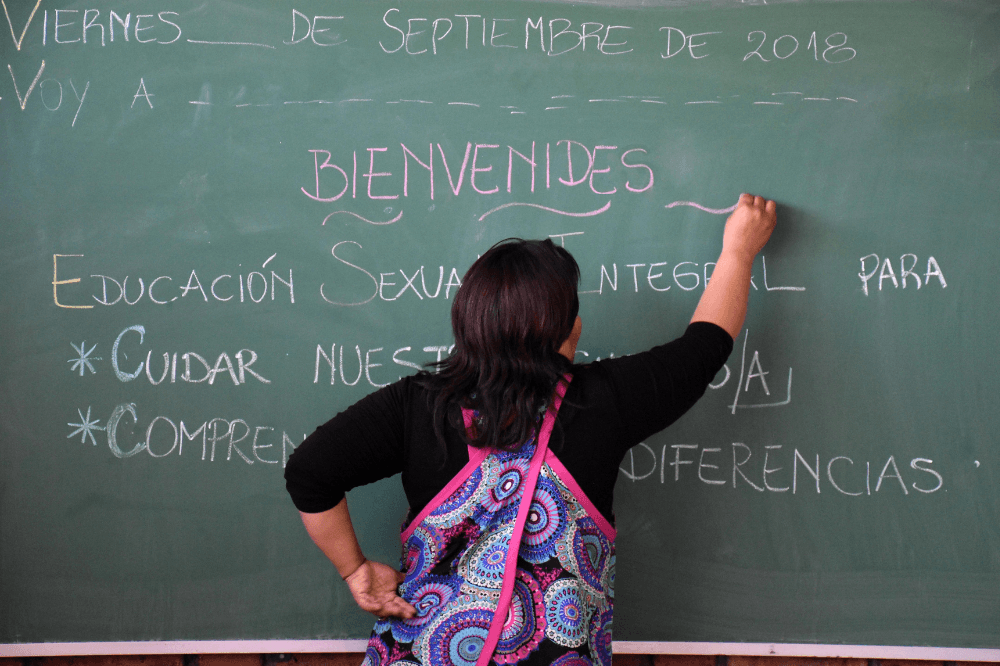 VIERNES ___ DE SEPTIEMBRE DE 2018
VOY A _ _ _ _ _ _ _ _ _ _ _ _
BIENVENIDES
EDUCACIÓN SEXUAL INTEGRAL PARA
*CUIDAR
* DIFERENCIAS.